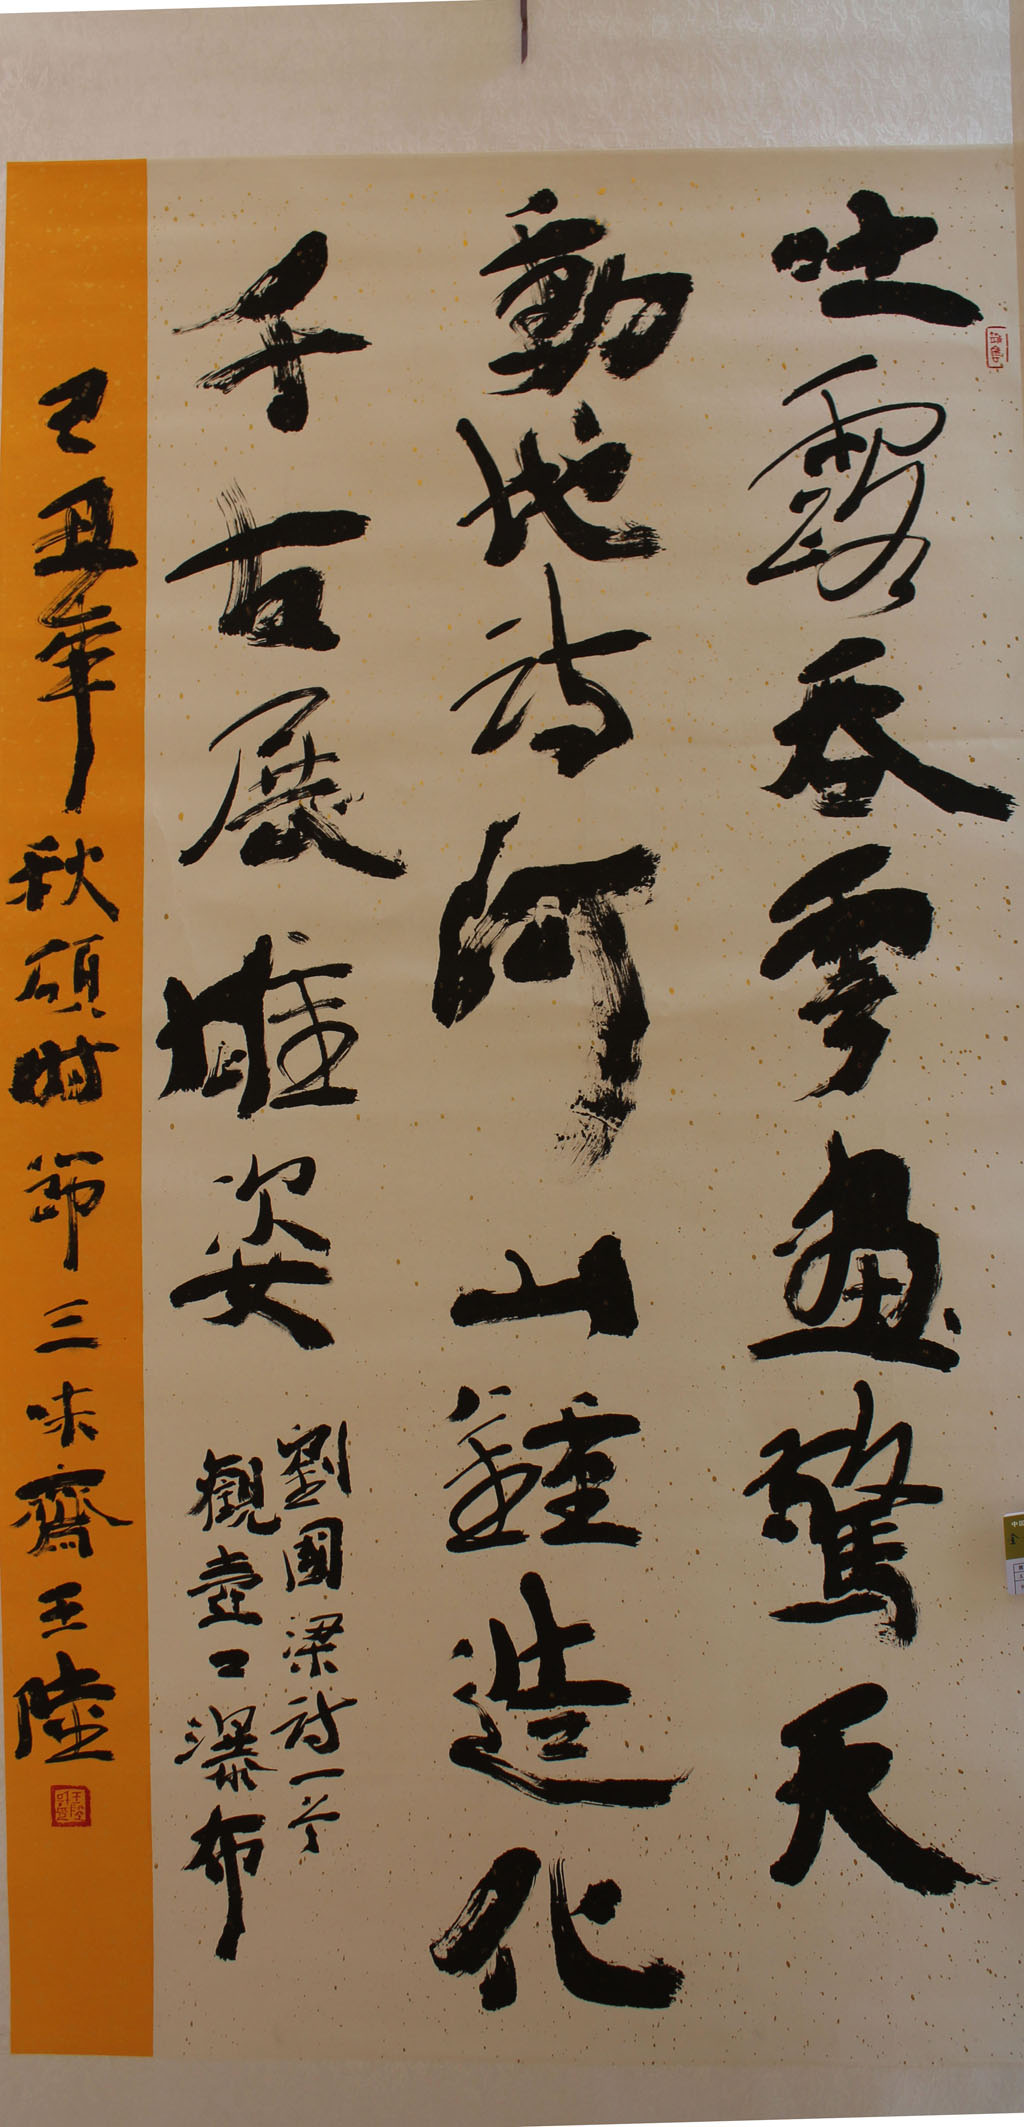 吐露吞雲畫驚天
動地詩河山鍾造化
千古展雄姿
劉國梁詩一首
觀壺口瀑布
己丑年秋碩時節三味齋王陸